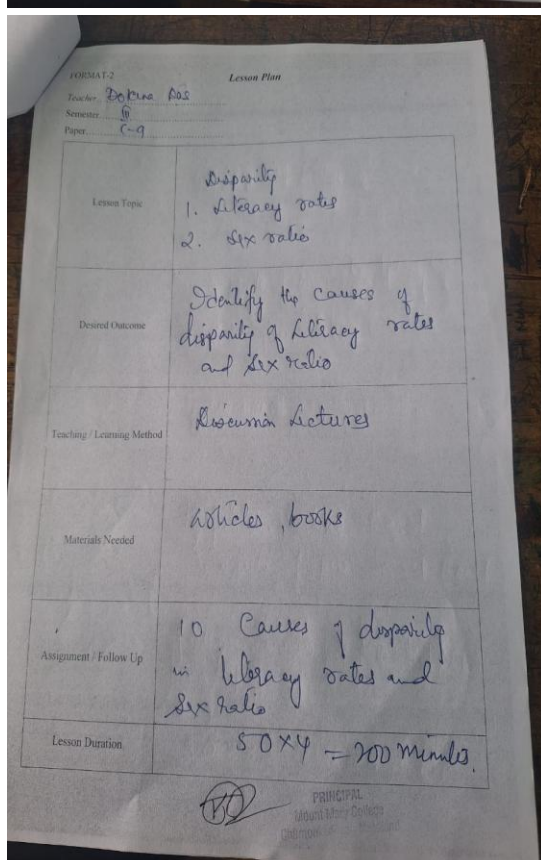 FORMAT-2
Lesson Plan
Teacher Das
Semester
Paper C-9
Lesson Topic
Disparity
1. Literacy rates
2. Sex ratio
Desired Outcome
Identify the causes of
disparity of Literacy rates
and Sex ratio
Teaching / Learning Method
Discussion Lectures
Materials Needed
articles, books
Assignment / Follow Up
10 Causes of disparity
in literacy rates and
Sex ratio
Lesson Duration
50x4 = 200 minutes.
PRINCIPAL
Mount Mary College